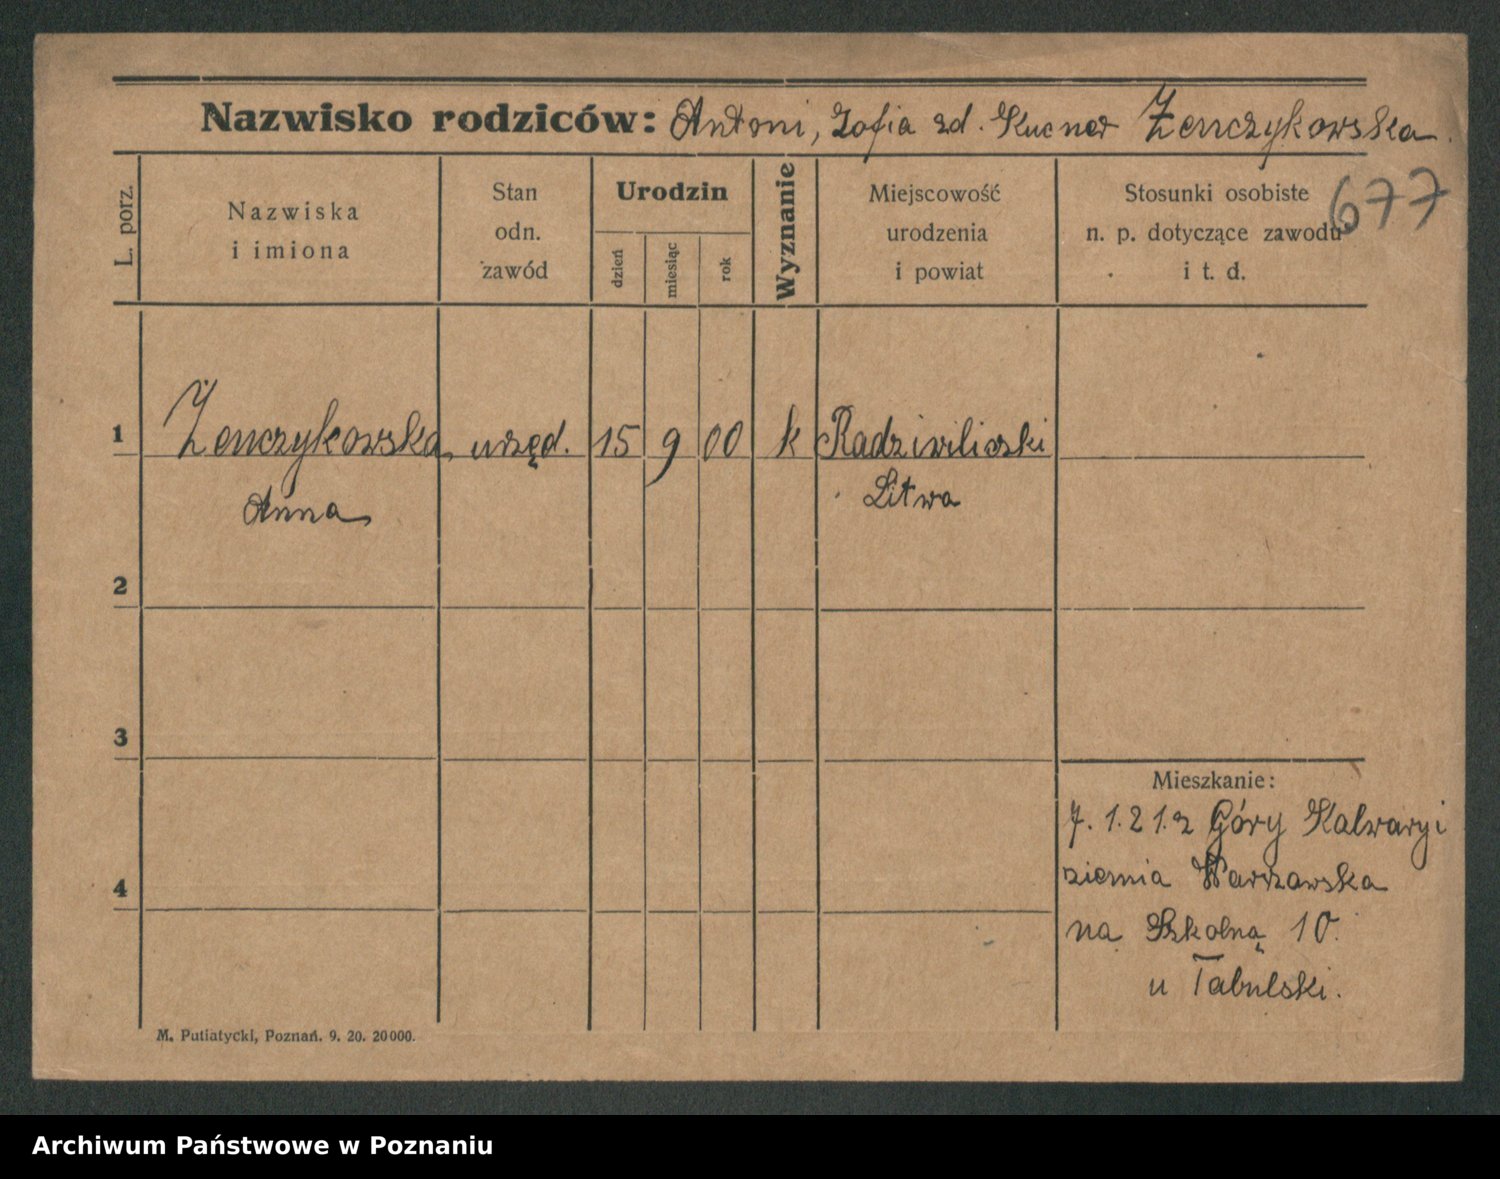 Nazwisko rodziców: Antoni, Zofia zd. Kucner Żenczykowska.
677
L. porz.
Nazwiska
i imiona
Stan
odn.
zawód
Urodzin
dzień
miesiąc
rok
Wyznanie
Miejscowość
urodzenia
i powiat
Stosunki osobiste
n. p. dotyczące zawodu
i t. d.
1 Żenczykowska urzęd. 15 9 00 k Radziwiliszki
Anna Litwa
2
3
Mieszkanie:
7. 1. 21. z Góry Kalwaryi
4 ziemia Warszawska
na Szkolną 10.
u Tabulski.
M. Putiatycki, Poznań. 9. 20. 20000.
Archiwum Państwowe w Poznaniu